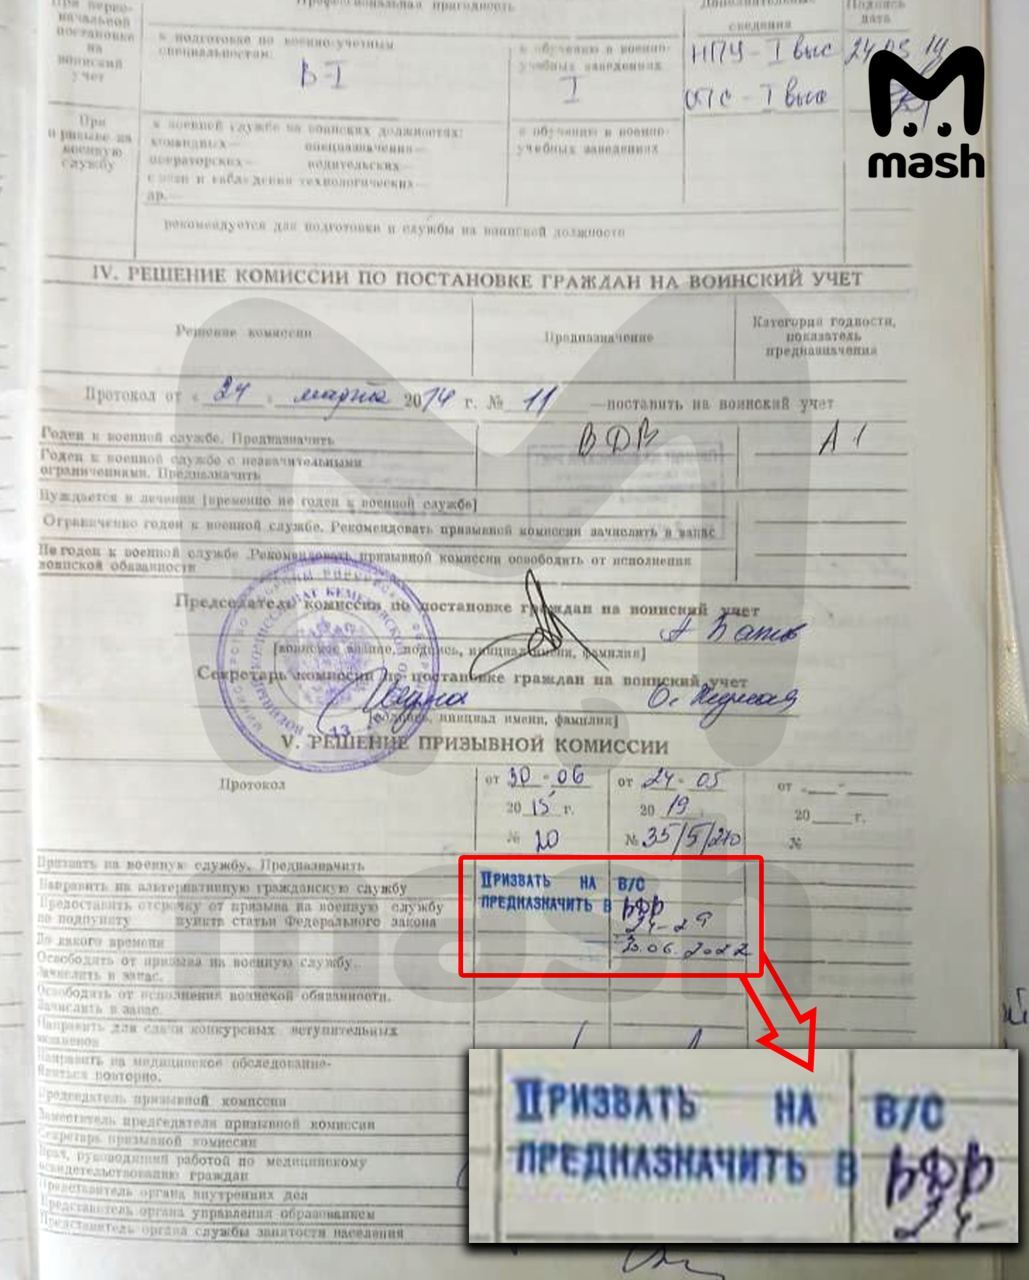 При перво-
начальной
постановке
на
воинский
учет
Профессиональная пригодность
сведения
Подпись
дата
к подготовке по военно-учетным
специальностям:
В-I
к обучению в военно-
учебных заведениях
I
НПУ - I выс
24.03.14
ОПС - I выс
mash
При
призыве на
военную
службу
к военной службе на воинских должностях:
командных— спецназначения—
операторских— водительских—
связи и наблюдения технологических—
др.—
к обучению в военно-
учебных заведениях
рекомендуется для подготовки и службы на воинской должности
IV. РЕШЕНИЕ КОМИССИИ ПО ПОСТАНОВКЕ ГРАЖДАН НА ВОИНСКИЙ УЧЕТ
Решение комиссии
Предназначение
Категория годности,
показатель
предназначения
Протокол от « 24 » марта 2014 г. № 11 —поставить на воинский учет
Годен к военной службе. Предназначить
ВДВ
А 1
Годен к военной службе с незначительными
ограничениями. Предназначить
Нуждается в лечении [временно не годен к военной службе]
Ограниченно годен к военной службе. Рекомендовать призывной комиссии зачислить в запас
Не годен к военной службе. Рекомендовать призывной комиссии освободить от исполнения
воинской обязанности
Председатель комиссии по постановке граждан на воинский учет
[воинское звание, подпись, инициал имени, фамилия]
Секретарь комиссии по постановке граждан на воинский учет
[подпись, инициал имени, фамилия]
V. РЕШЕНИЕ ПРИЗЫВНОЙ КОМИССИИ
Протокол
от 30 - 06
2015 г.
№ 20
от 24 - 05
2019 г.
№ 35/5/210
от «___»____
20____г.
№
Призвать на военную службу. Предназначить
Направить на альтернативную гражданскую службу
Предоставить отсрочку от призыва на военную службу
по подпункту пункта статьи Федерального закона
До какого времени
Освободить от призыва на военную службу.
Зачислить в запас.
Освободить от исполнения воинской обязанности.
Зачислить в запас.
Направить для сдачи конкурсных вступительных
экзаменов
Направить на медицинское обследование.
Явиться повторно.
Председатель призывной комиссии
Заместитель председателя призывной комиссии
Секретарь призывной комиссии
Врач, руководящий работой по медицинскому
освидетельствованию граждан
Представитель органа внутренних дел
Представитель органа управления образованием
Представитель органа службы занятости населения
ПРИЗВАТЬ НА В/С
ПРЕДНАЗНАЧИТЬ В
24-29
06.2022
ПРИЗВАТЬ НА В/С
ПРЕДНАЗНАЧИТЬ В
24-
mash